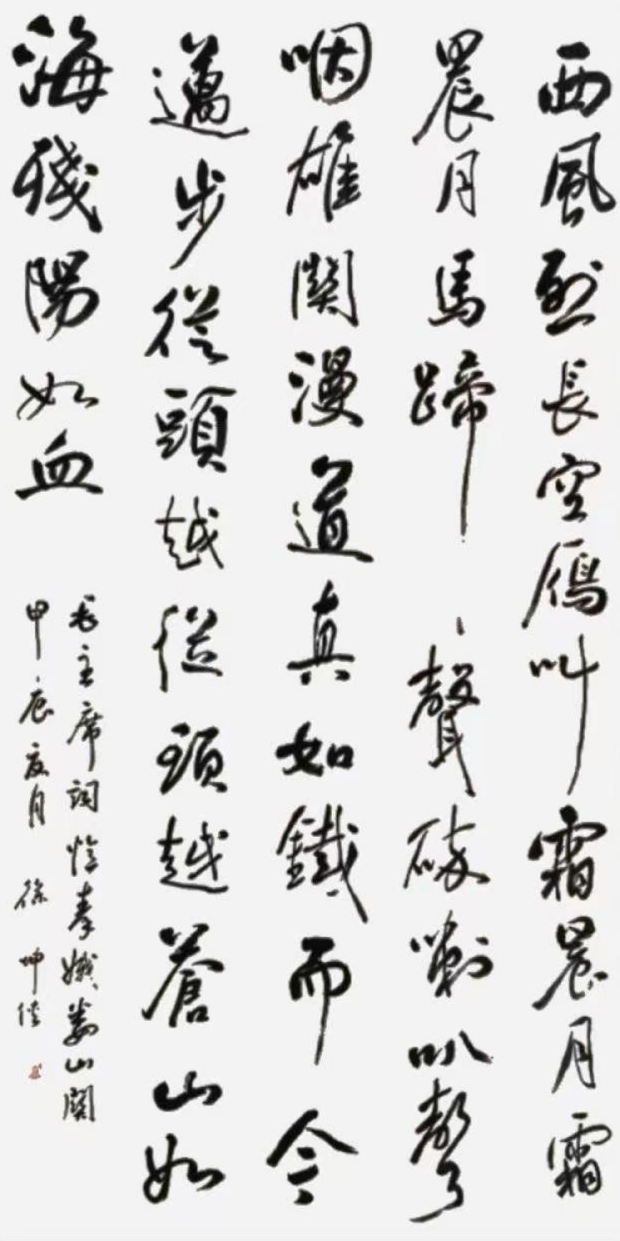 西風烈長空雁叫霜晨月霜
晨月馬蹄聲碎喇叭聲
咽雄關漫道真如鐵而今
邁步從頭越從頭越蒼山如
海殘陽如血
毛主席詞憶秦娥婁山關
甲辰夏月 徐坤